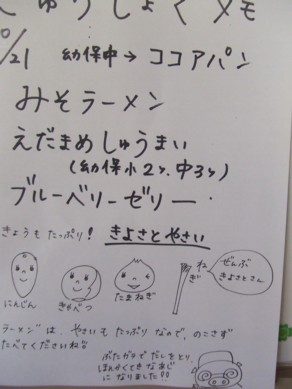 きゅうしょくメモ
0/21 幼保中→ココアパン
みそラーメン
えだまめしゅうまい
(幼保小2コ、中3コ)
ブルーベリーゼリー
きょうもたっぷり! きよさとやさい
にんじん
きゃべつ
たまねぎ
ねぎ
ぜんぶ
きよさとさん
ラーメンは、やさいもたっぷりなので、のこさず
たべてくださいね
ぶたがらでだしをとり、
ほんかくてきなあじ
になりました!!